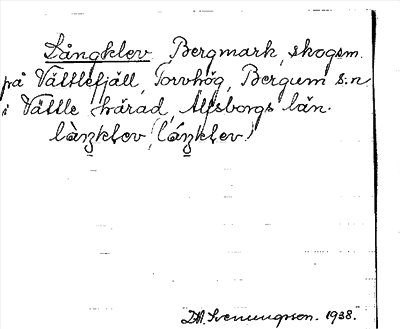 Långklev Bergmark, skogsm.
på Vättlefjäll, Torvhög, Bergum s:n
i Vättle härad, Älfsborgs län.
làŋklev, (láŋklev)
D.A. Svenungsson. 1938.